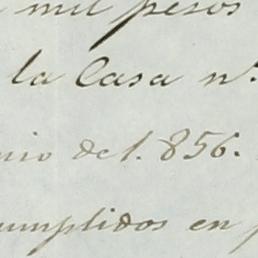 mil pesos
la Casa nº
nio de 1.856.
cumplidos en